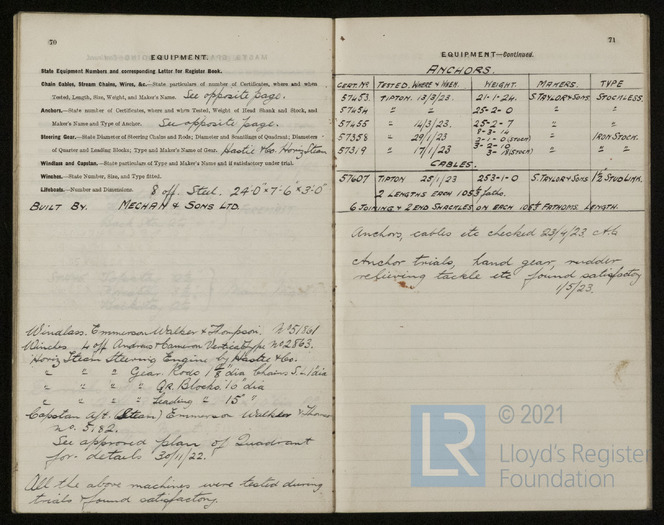 70
EQUIPMENT.
State Equipment Numbers and corresponding Letter for Register Book.
Chain Cables, Stream Chains, Wires, &c.—State particulars of number of Certificates, where and when
Tested, Length, Size, Weight, and Maker's Name. See opposite page.
Anchors.—State number of Certificates, where and when Tested, Weight of Head Shank and Shank, and
Maker's Name and Type of Anchor. See opposite page.
Steering Gear.—State Diameter of Steering Chains and Rods; Diameter and Scantlings of Quadrant; Diameters
of Quarter and Leading Blocks; Type and Maker's Name of Gear. Hastie & Co. Horiz Steam
Windlass and Capstan.—State particulars of Type and Maker's Name and if satisfactory under trial.
Winches.—State Number, Size, and Type fitted.
Lifeboats.—Number and Dimensions. 8 off. Steel. 24'0" x 7'-6" x 3'-0"
BUILT BY. MECHAN & SONS LTD.
Windlass. Emmerson Walker & Thompson. No 51861
Winches 4 off Andrew & Cameron Vertical type No 2863.
Horiz Steam Steering Engine by Hastie & Co.
" " " Gear. Rods 1 dia Chains S.L 1 dia
" " " " Qr. Blocks 10" dia
" " " " Leading " 15" "
Capstan Aft. (Steam) Emmerson Walker
No. 5182.
See approved plan of Quadrant
for details 30/11/22.
All the above machines were tested during
trials & found satisfactory.
71
EQUIPMENT—Continued.
ANCHORS.
CERT. No TESTED. WHERE & WHEN. WEIGHT. MAKERS. TYPE
57453. TIPTON. 13/3/23. 21-1-24. S. TAYLOR & SONS. STOCKLESS.
57454 " " 25-2-0 " "
57455 " 14/3/23. 25-2-7 " "
57358 " 29/1/23 8-3-14 2-1-0 (STOCK) " IRON STOCK.
57319 " 17/1/23 3-2-10 3-18 (STOCK) " " "
CABLES.
57607 TIPTON 25/1/23 253-1-0 S. TAYLOR & SONS 1½ STUD LINK.
2 LENGTHS EACH 105½ faths.
6 JOINING & 2 END SHACKLES ON EACH 105½ FATHOMS LENGTH.
Anchors, cables etc checked 23/4/23
Anchor trials, hand gear, rudder
relieving tackle etc found satisfactory
1/5/23.
LR
© 2021
Lloyd's Register
Foundation